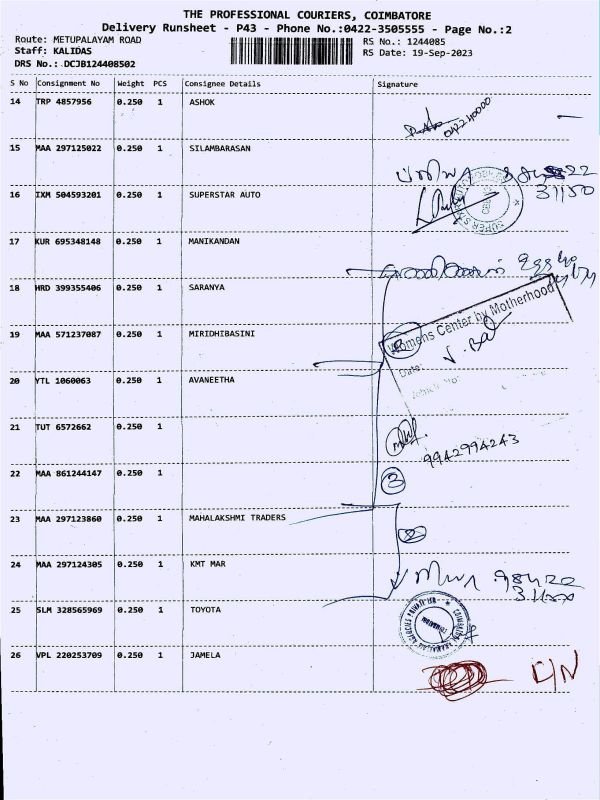 THE PROFESSIONAL COURIERS, COIMBATORE
Delivery Runsheet - P43 - Phone No.:0422-3505555 - Page No.:2
Route: METUPALAYAM ROAD
RS No.: 1244085
Staff: KALIDAS
RS Date: 19-Sep-2023
DRS No.: DCJB124408502
S No Consignment No Weight PCS Consignee Details Signature
14 TRP 4857956 0.250 1 ASHOK
15 MAA 297125022 0.250 1 SILAMBARASAN
16 IXM 504593201 0.250 1 SUPERSTAR AUTO
31150
17 KUR 695348148 0.250 1 MANIKANDAN
18 HRD 399355406 0.250 1 SARANYA
Womens Center by Motherhood
19 MAA 571237087 0.250 1 MIRIDHIBASINI
Date:
20 YTL 1060063 0.250 1 AVANEETHA
21 TUT 6572662 0.250 1
9942994243
22 MAA 861244147 0.250 1
3
23 MAA 297123860 0.250 1 MAHALAKSHMI TRADERS
24 MAA 297124305 0.250 1 KMT MAR
25 SLM 328565969 0.250 1 TOYOTA
26 VPL 220253709 0.250 1 JAMELA